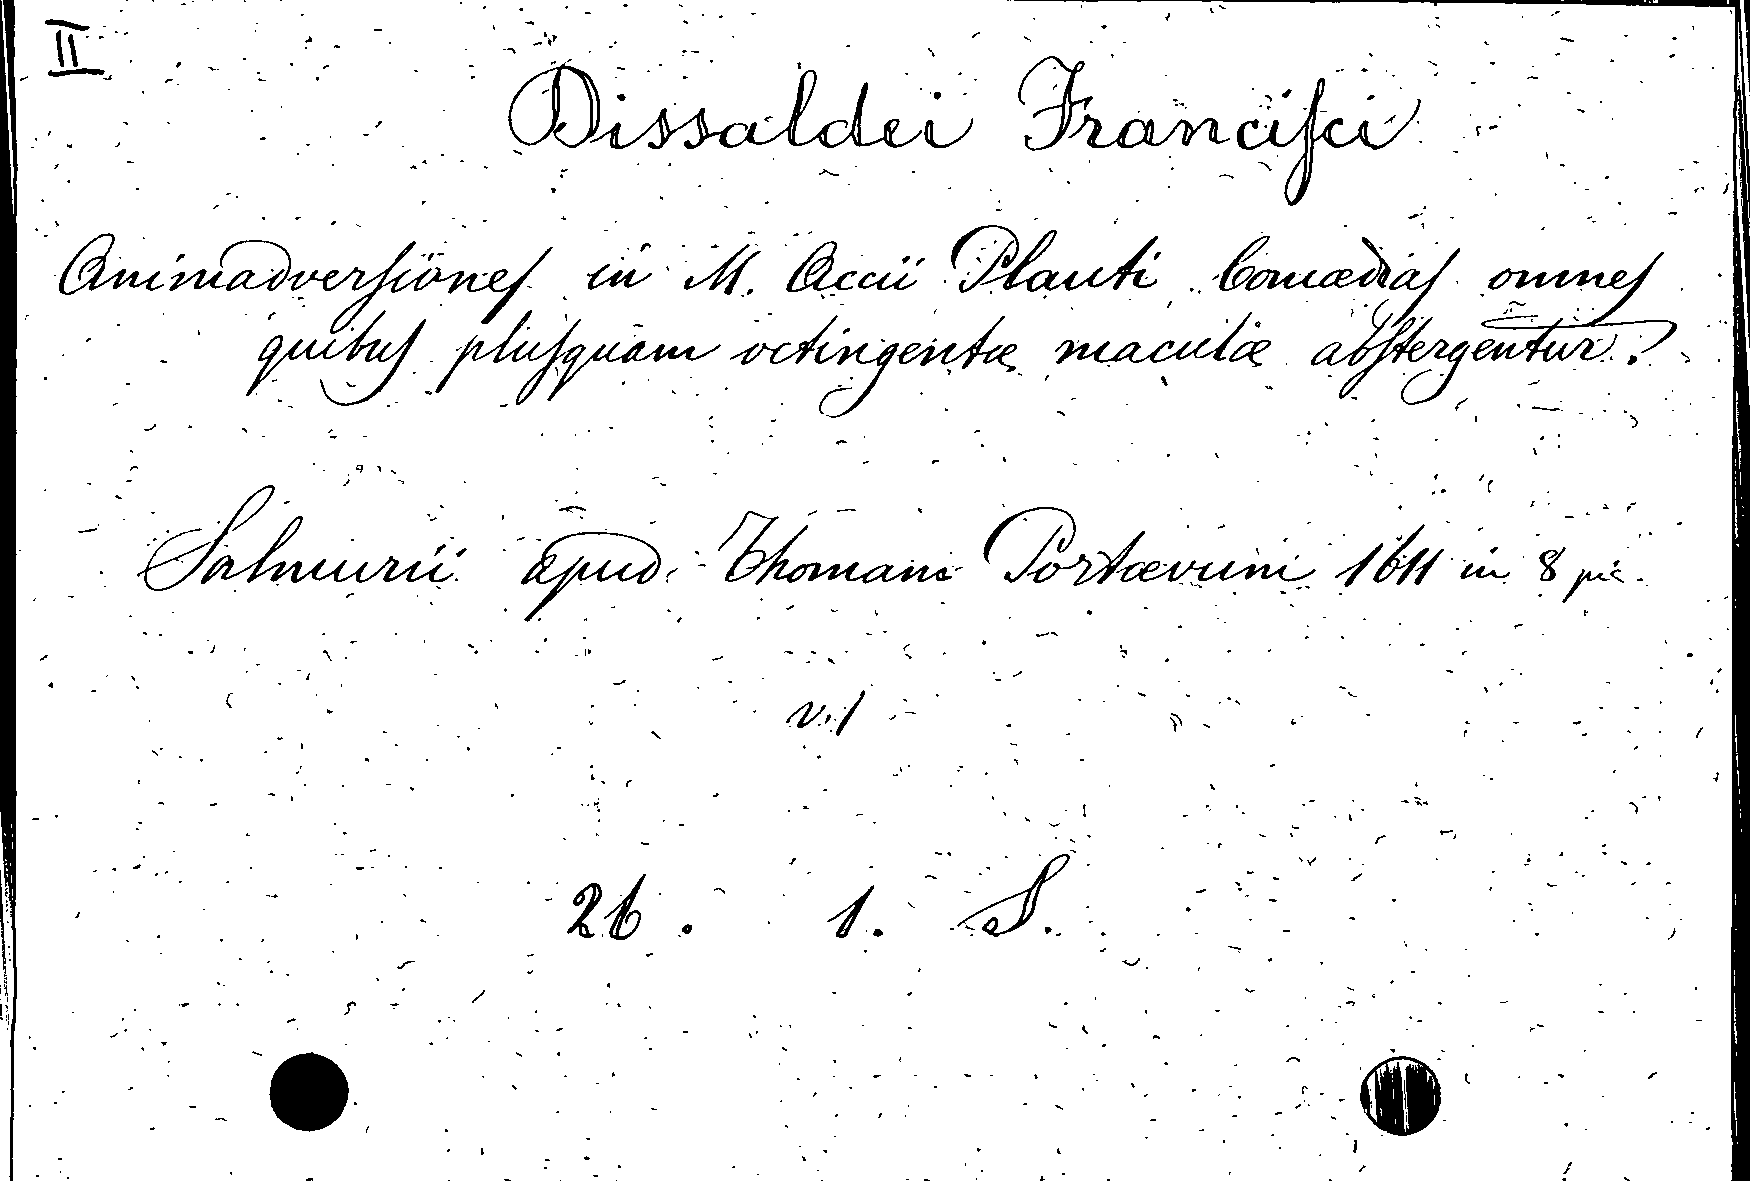 II
Dissaldei Franciſci
Animadverſiones in M. Accii Plauti Comœdias omnes
quibus pluſquam octingentæ maculæ abſtergentur.
Salmurii apud Thomam Portævum 1611 in 8 pic.
26. 1. S.